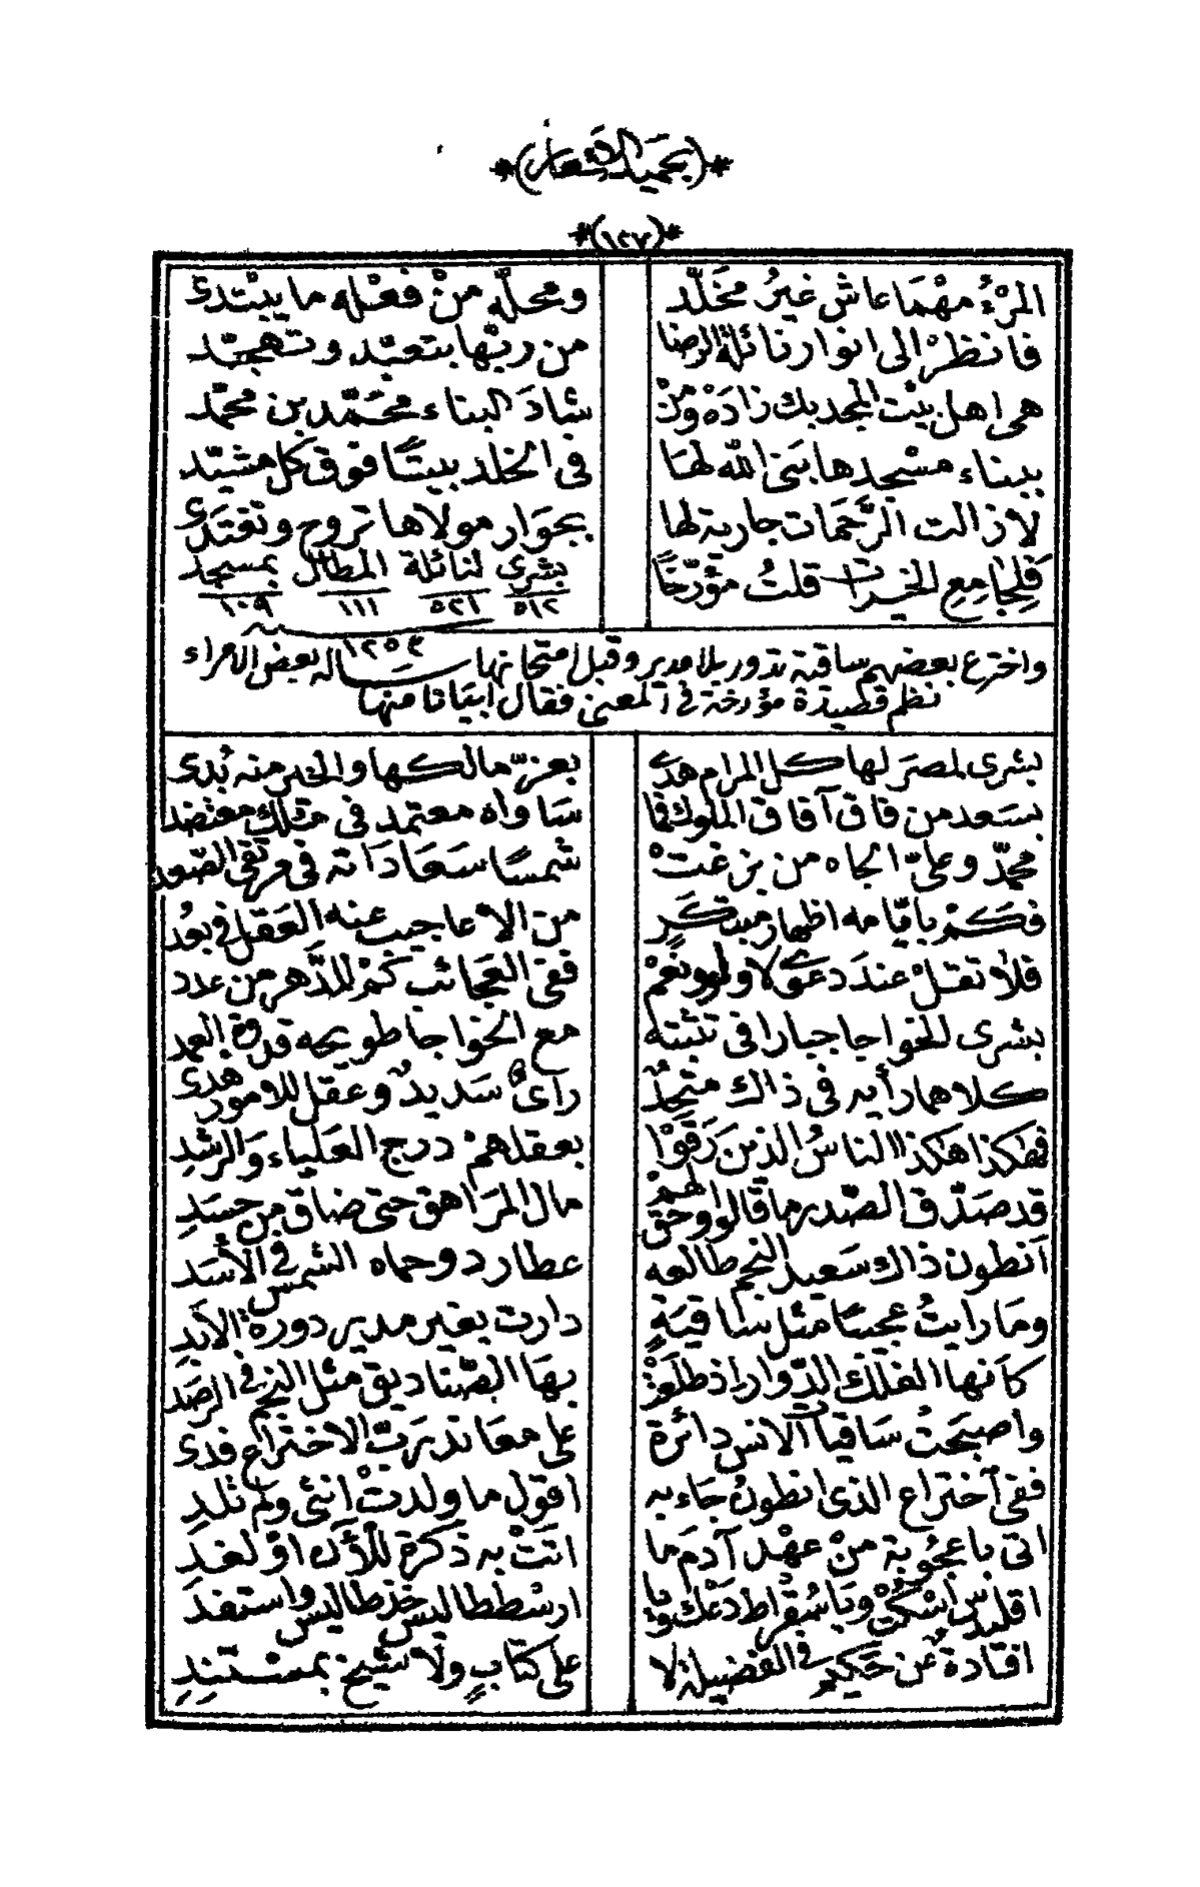 *(بحميد الاشعار)*
*(١٢٧)*
المرْءُ مهْمَا عاش غيرُ مخَلَّد ومحلّه منْ فعْله ما يبْتدئ
فانظرْ الى انوار نائلة الرضا من ربّها بتعبّد وتهجّد
هى اهل بيْت المجد بك زادَهْ ومنْ شادَ البناء محَمّد بن محمّد
ببناء مسْجدها بنى الله لهَا فى الخلد بيتًا فوق كل مشيّد
لا زالت الرَّحمَات جارية لها بجوَار مولاها تروح وتغتدَى
فلجامع الخيرات قلتُ مؤرّخًا بشرى لنائلة المطال بمسجد
٥١٢ ٥٢١ ١١١ ١٠٩
١٢٥٣
واخترع بعضهم ساقية تدور بلا مدير وقبل امتحانها سَاله بعض الامراء
نظم قصيدة مؤرخة فى المعنى فقال ابياتا منها
بشرى لمصرَ لها كل المرام هدى بعزّ مالكها والخير منه بُدى
بسَعد من فاق آفاق الملوك فما سَاواه معتمد فى ملك معتضد
محمّد وعلىّ الجاه من بزغتْ شمسًا سَعَادَاته فى مرتقى الصّعد
فكَمْ بايّامه اظهار مبتكَرٍ من الاعاجيب عنه العَقل فى بعُد
فلا تقلْ عندَ دعوَى لا ولم ونعَمْ ففى العجَائب كمْ للدَّهر من عدد
بشرى للخواجا جبارا فى تثبته مع الخواجا طويحه قدوة العمد
كلاهما رأيه فى ذاك متّحدٌ رأىٌ سَديدٌ وعقل للامور هدى
فهكذا هٰكذا الناسُ الذينَ رَقَوْا بعقلهمْ درج العَلياء وَالرشدِ
قد صَدّق الصّدر ما قالوا وحَق لهمْ مال المرَاهق حتى ضاق من حسَدِ
انطون ذاك سَعيد النجم طالعه عطارد وحماه الشمس فى الأسَد
ومَا رايتُ عجيبًا مثل ساقيَةٍ دارت بغير مدير دورة الأبَدِ
كأنها الفلك الدّوار اذ طلَعَتْ بهَا الصّناديق مثل النجم فى الرصَد
واصبَحتْ سَاقيات الانس دائرة على معَانذرَبّ الاختراع فدى
ففى اختراع الذى انطون جَاء به اقول ما ولدتْ انثى ولمْ تلدِ
اتى باعجُوبة منْ عهْد آدمَ ما اتَتْ به ذكرة للآن اوْ لغدِ
اقليدس اسْكتْ ويا سُقراط دَعْك ويا ارسْططاليس خذ طاليس واستفدَ
افادة عن حَكيم فى الفضيلة لا على كتابٍ ولا شيخ بمسْتندِ